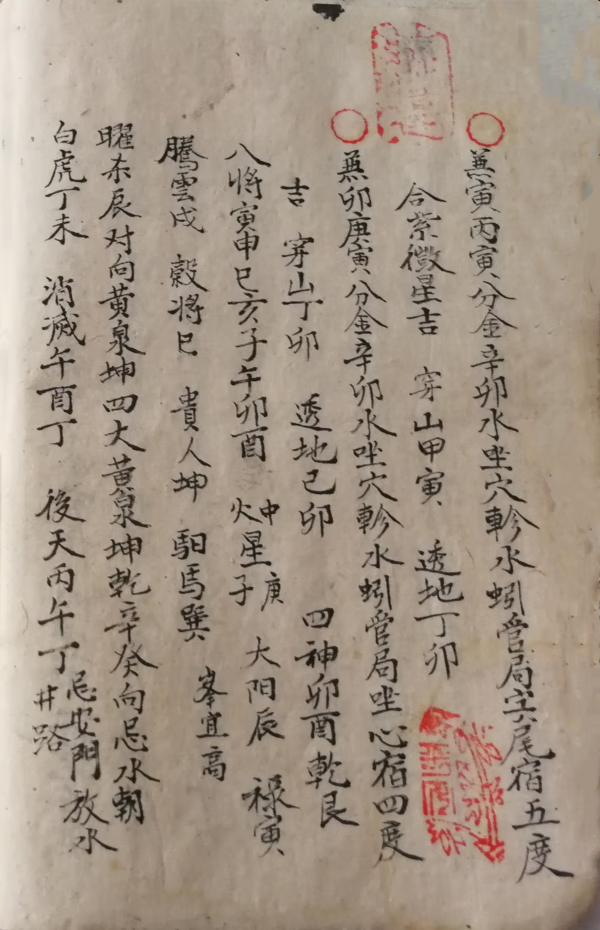 兼寅丙寅分金辛卯水坐穴軫水蚓管局尾宿五度
合紫微星吉 穿山甲寅 透地丁卯
兼卯庚寅分金辛卯水坐穴軫水蚓管局坐心宿四度
吉 穿山丁卯 透地己卯 四神卯酉乾艮
八將寅申巳亥子午卯酉 火星申子庚 大阳辰 禄寅
騰雲戌 穀将巳 貴人坤 馹馬巽 峯宜高
曜杀辰对向黄泉坤四大黄泉坤乾辛癸向忌水朝
白虎丁未 消滅午酉丁 後天丙午丁忌安門放水井路